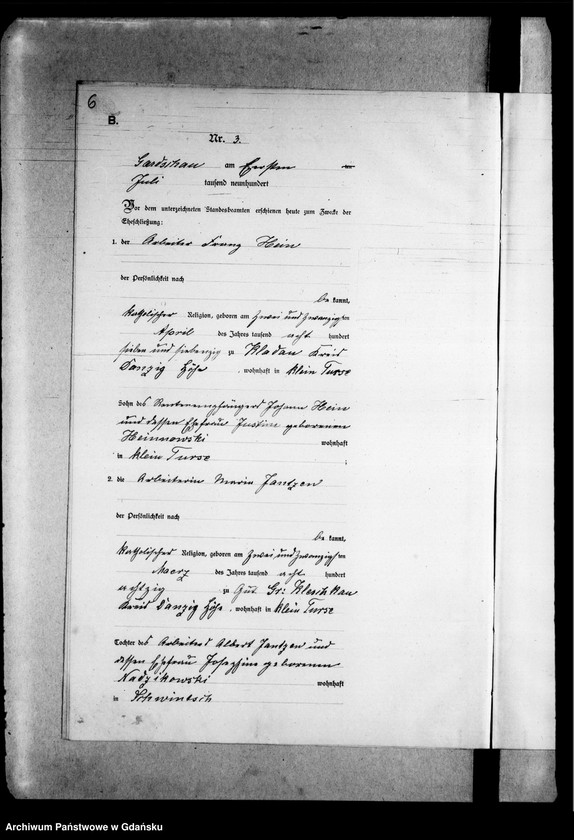 6
B.
Nr. 3.
Gardschau am Ersten
Juli tausend neunhundert
Vor dem unterzeichneten Standesbeamten erschienen heute zum Zwecke der
Eheschließung:
1. der Arbeiter Franz Hein
der Persönlichkeit nach
be kannt,
katholischer Religion, geboren am zwei und zwanzig ten
April des Jahres tausend acht hundert
sieben und siebenzig zu Kladau Kreis
Danzig Höhe, wohnhaft in klein Turse
Sohn des Rentenempfängers Johann Hein
und dessen Ehefrau Justine geborenen
wohnhaft
in klein Turse ;
2. die Arbeiterin Maria Jantzen
der Persönlichkeit nach
be kannt,
katholischer Religion, geboren am zwei und zwanzig ten
Maerz des Jahres tausend acht hundert
achtzig zu Gut Gr: Kleschkau
Kreis Danzig Höhe, wohnhaft in klein Turse
Tochter des Arbeiters Albert Jantzen und
dessen Ehefrau Josephine geborenen
Nadzikowski wohnhaft
in Schwintsch
Archiwum Państwowe w Gdańsku